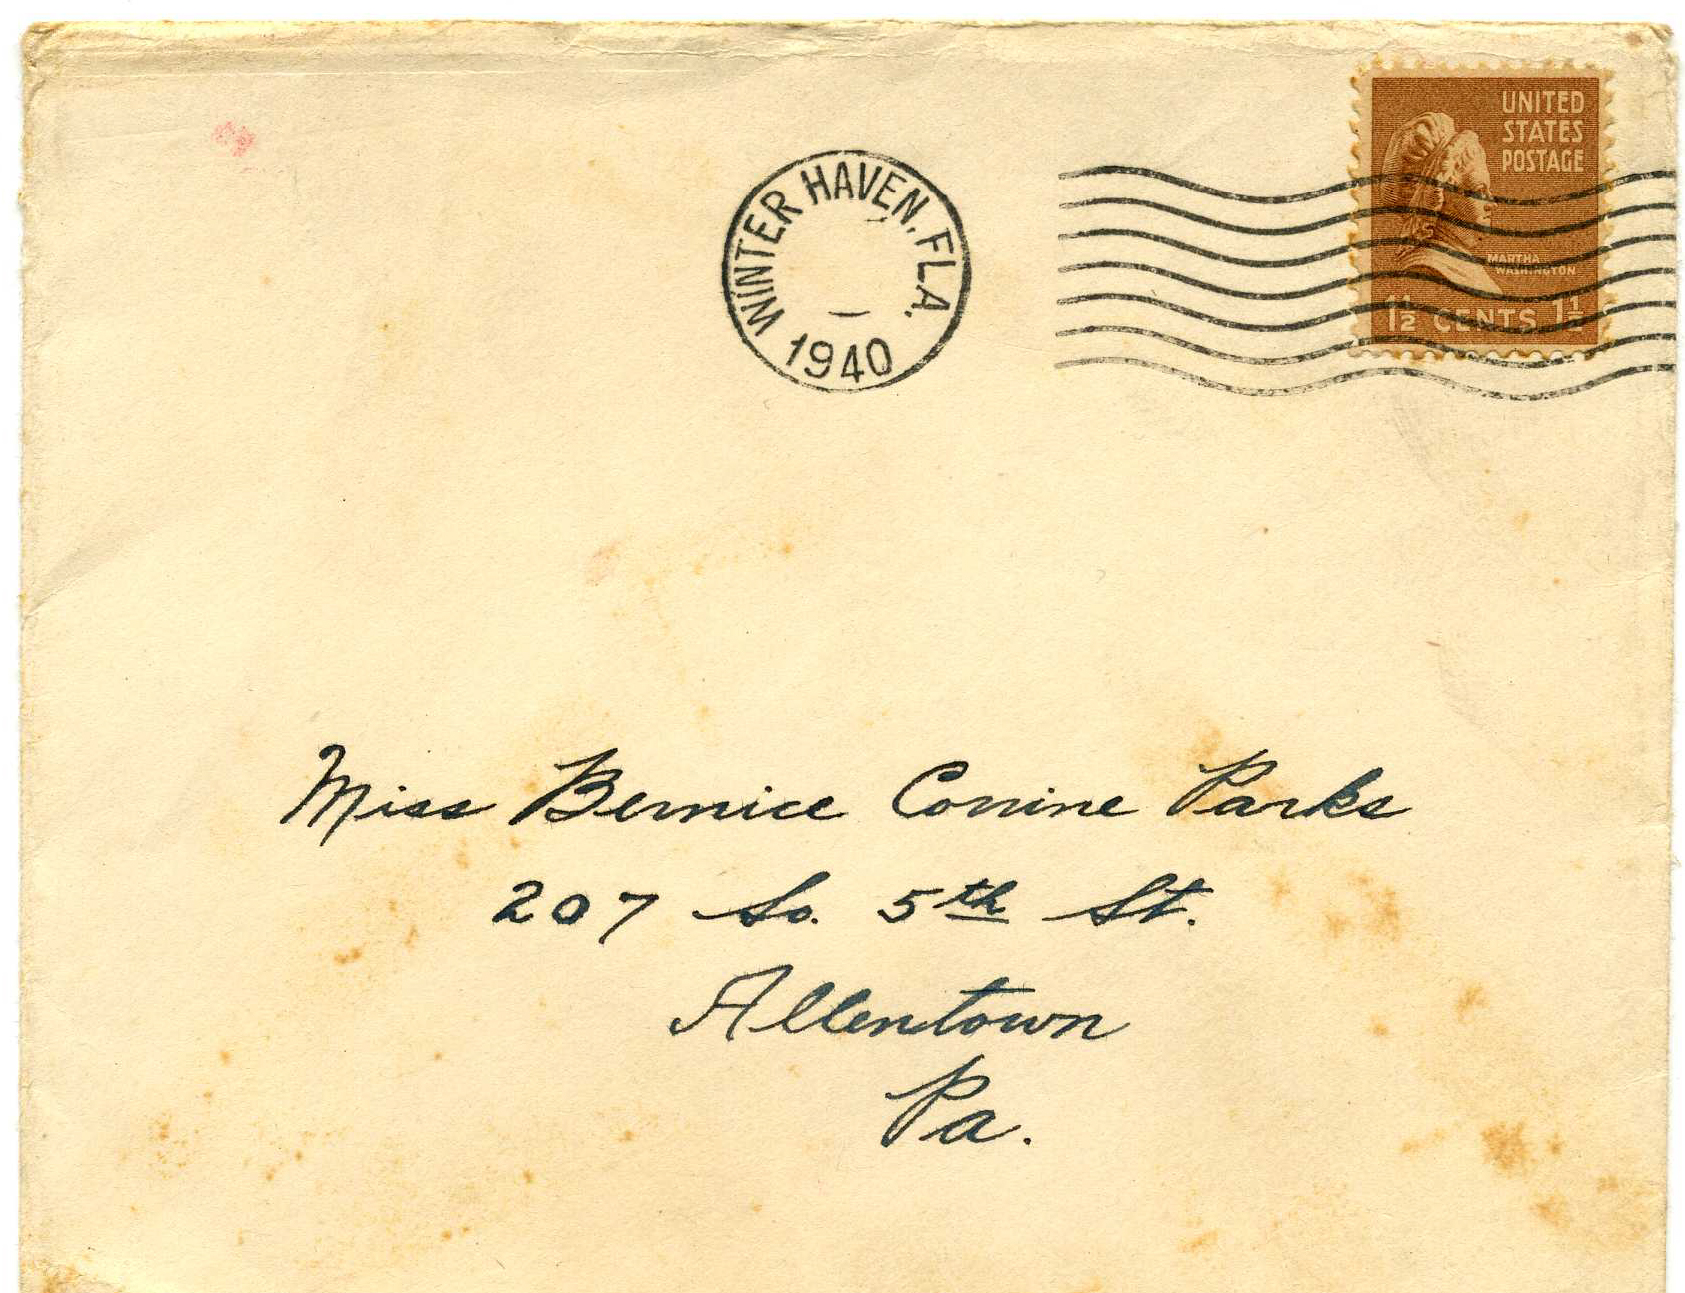 WINTER HAVEN, FLA.
1940
UNITED
STATES
POSTAGE
MARTHA
WASHINGTON
1½ CENTS 1½
Miss Bernice Conine Parks
207 So. 5th St.
Allentown
Pa.